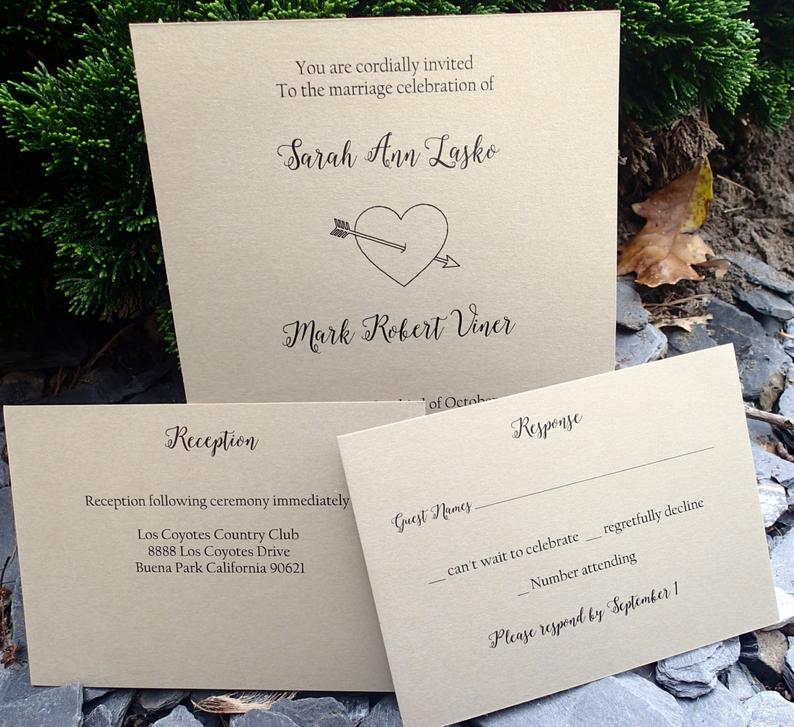 You are cordially invited
To the marriage celebration of
Sarah Ann Lasko
Mark Robert Viner
of October
Reception
Reception following ceremony immediately
Los Coyotes Country Club
8888 Los Coyotes Drive
Buena Park California 90621
Response
Guest Names
__ can't wait to celebrate __ regretfully decline
_ Number attending
Please respond by September 1